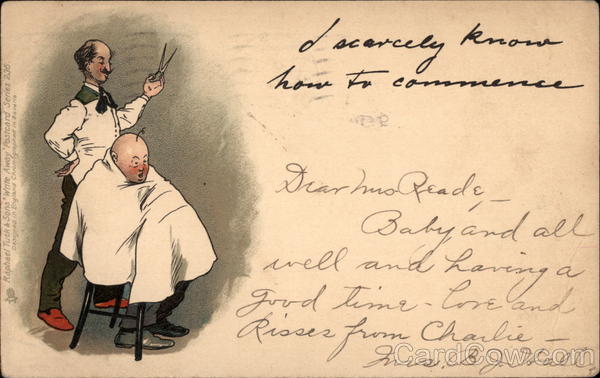 I scarcely know
how to commence
Dear Mrs Reade,—
Baby and all
well and having a
good time - Love and
Kisses from Charlie —
Mrs.
Raphael Tuck & Sons' "Write Away" Postcard Series
Designed in England Chromographed in Bavaria
CardCow.com